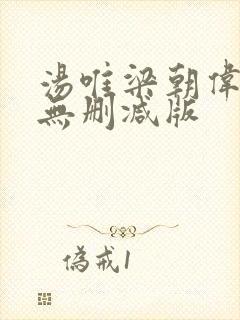 湯唯梁朝偉
無刪減版
偽戒1